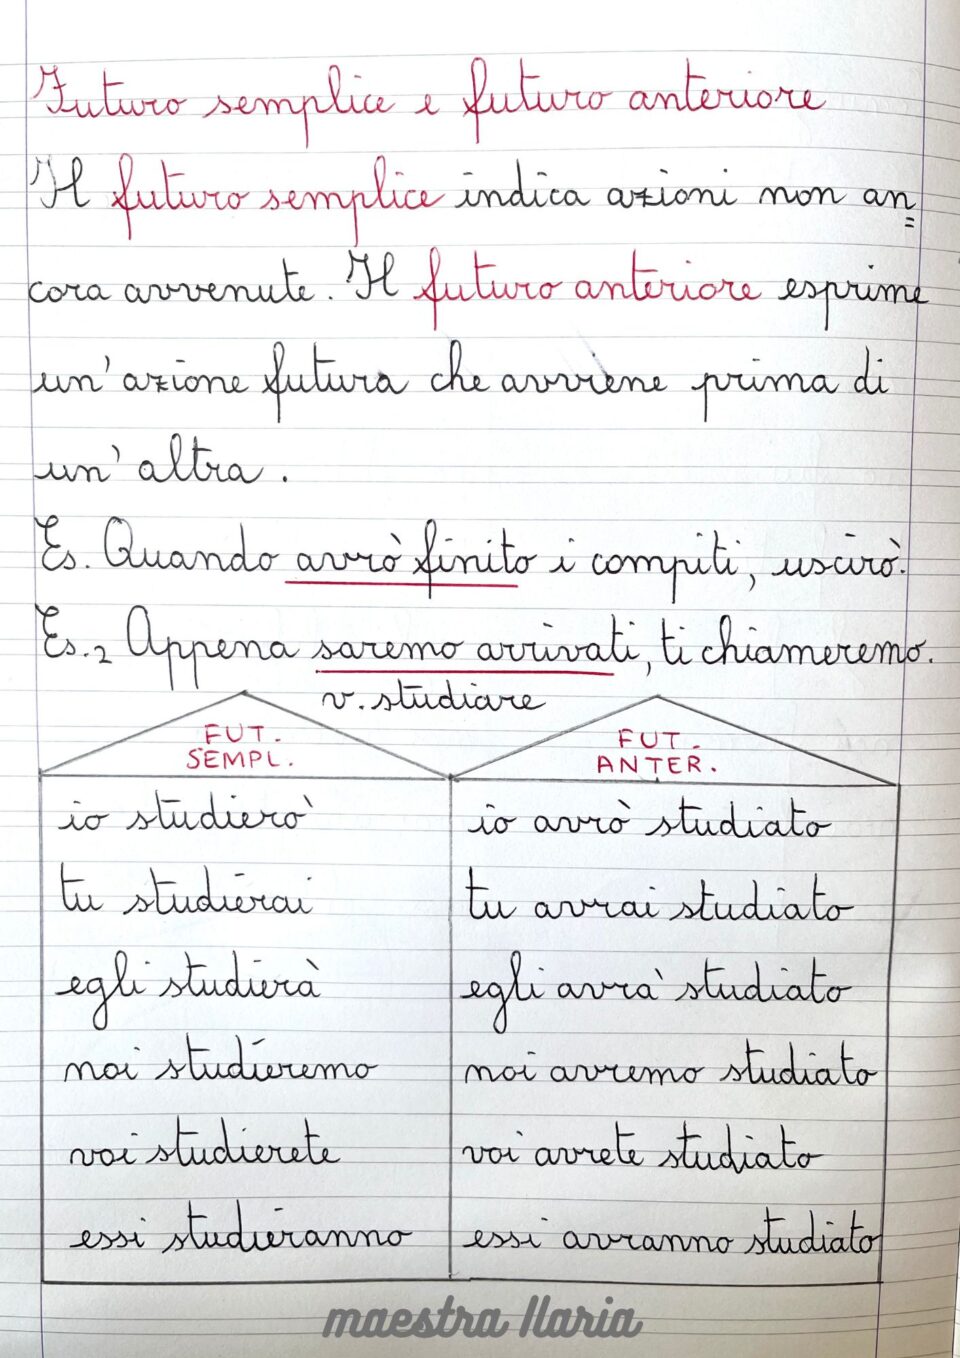 Futuro semplice e futuro anteriore
Il futuro semplice indica azioni non an=
cora avvenute. Il futuro anteriore esprime
un'azione futura che avviene prima di
un'altra.
Es. Quando avrò finito i compiti, uscirò.
Es. 2 Appena saremo arrivati, ti chiameremo.
v. studiare
FUT. SEMPL.
FUT. ANTER.
io studierò io avrò studiato
tu studierai tu avrai studiato
egli studierà egli avrà studiato
noi studieremo noi avremo studiato
voi studierete voi avrete studiato
essi studieranno essi avranno studiato
maestra Ilaria